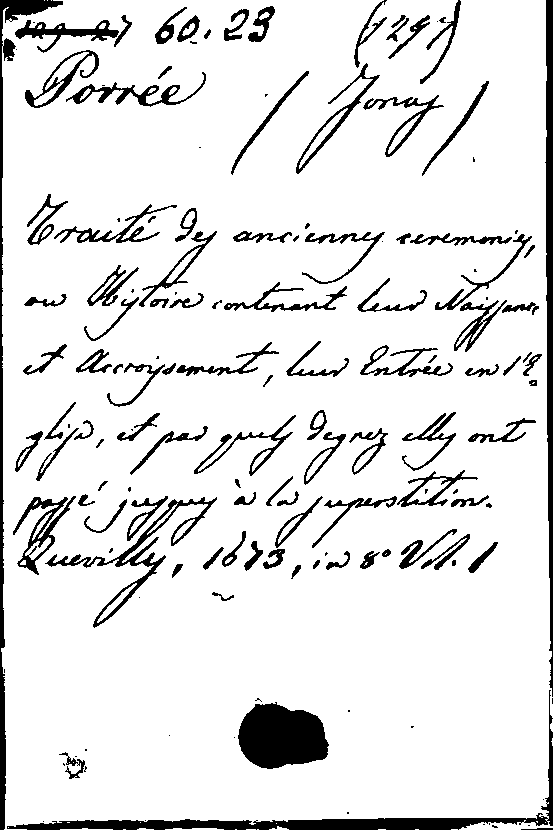 129-27 60.23 (1297)
Porrée / Jonas /
Traité des anciennes ceremonies,
ou Histoire contenant leur Naissance
et Accroissement, leur Entrée en l'E=
glise, et par quels degrez elles ont
passé jusques à la superstition.
Quevilly, 1673, in 8° Vol. 1